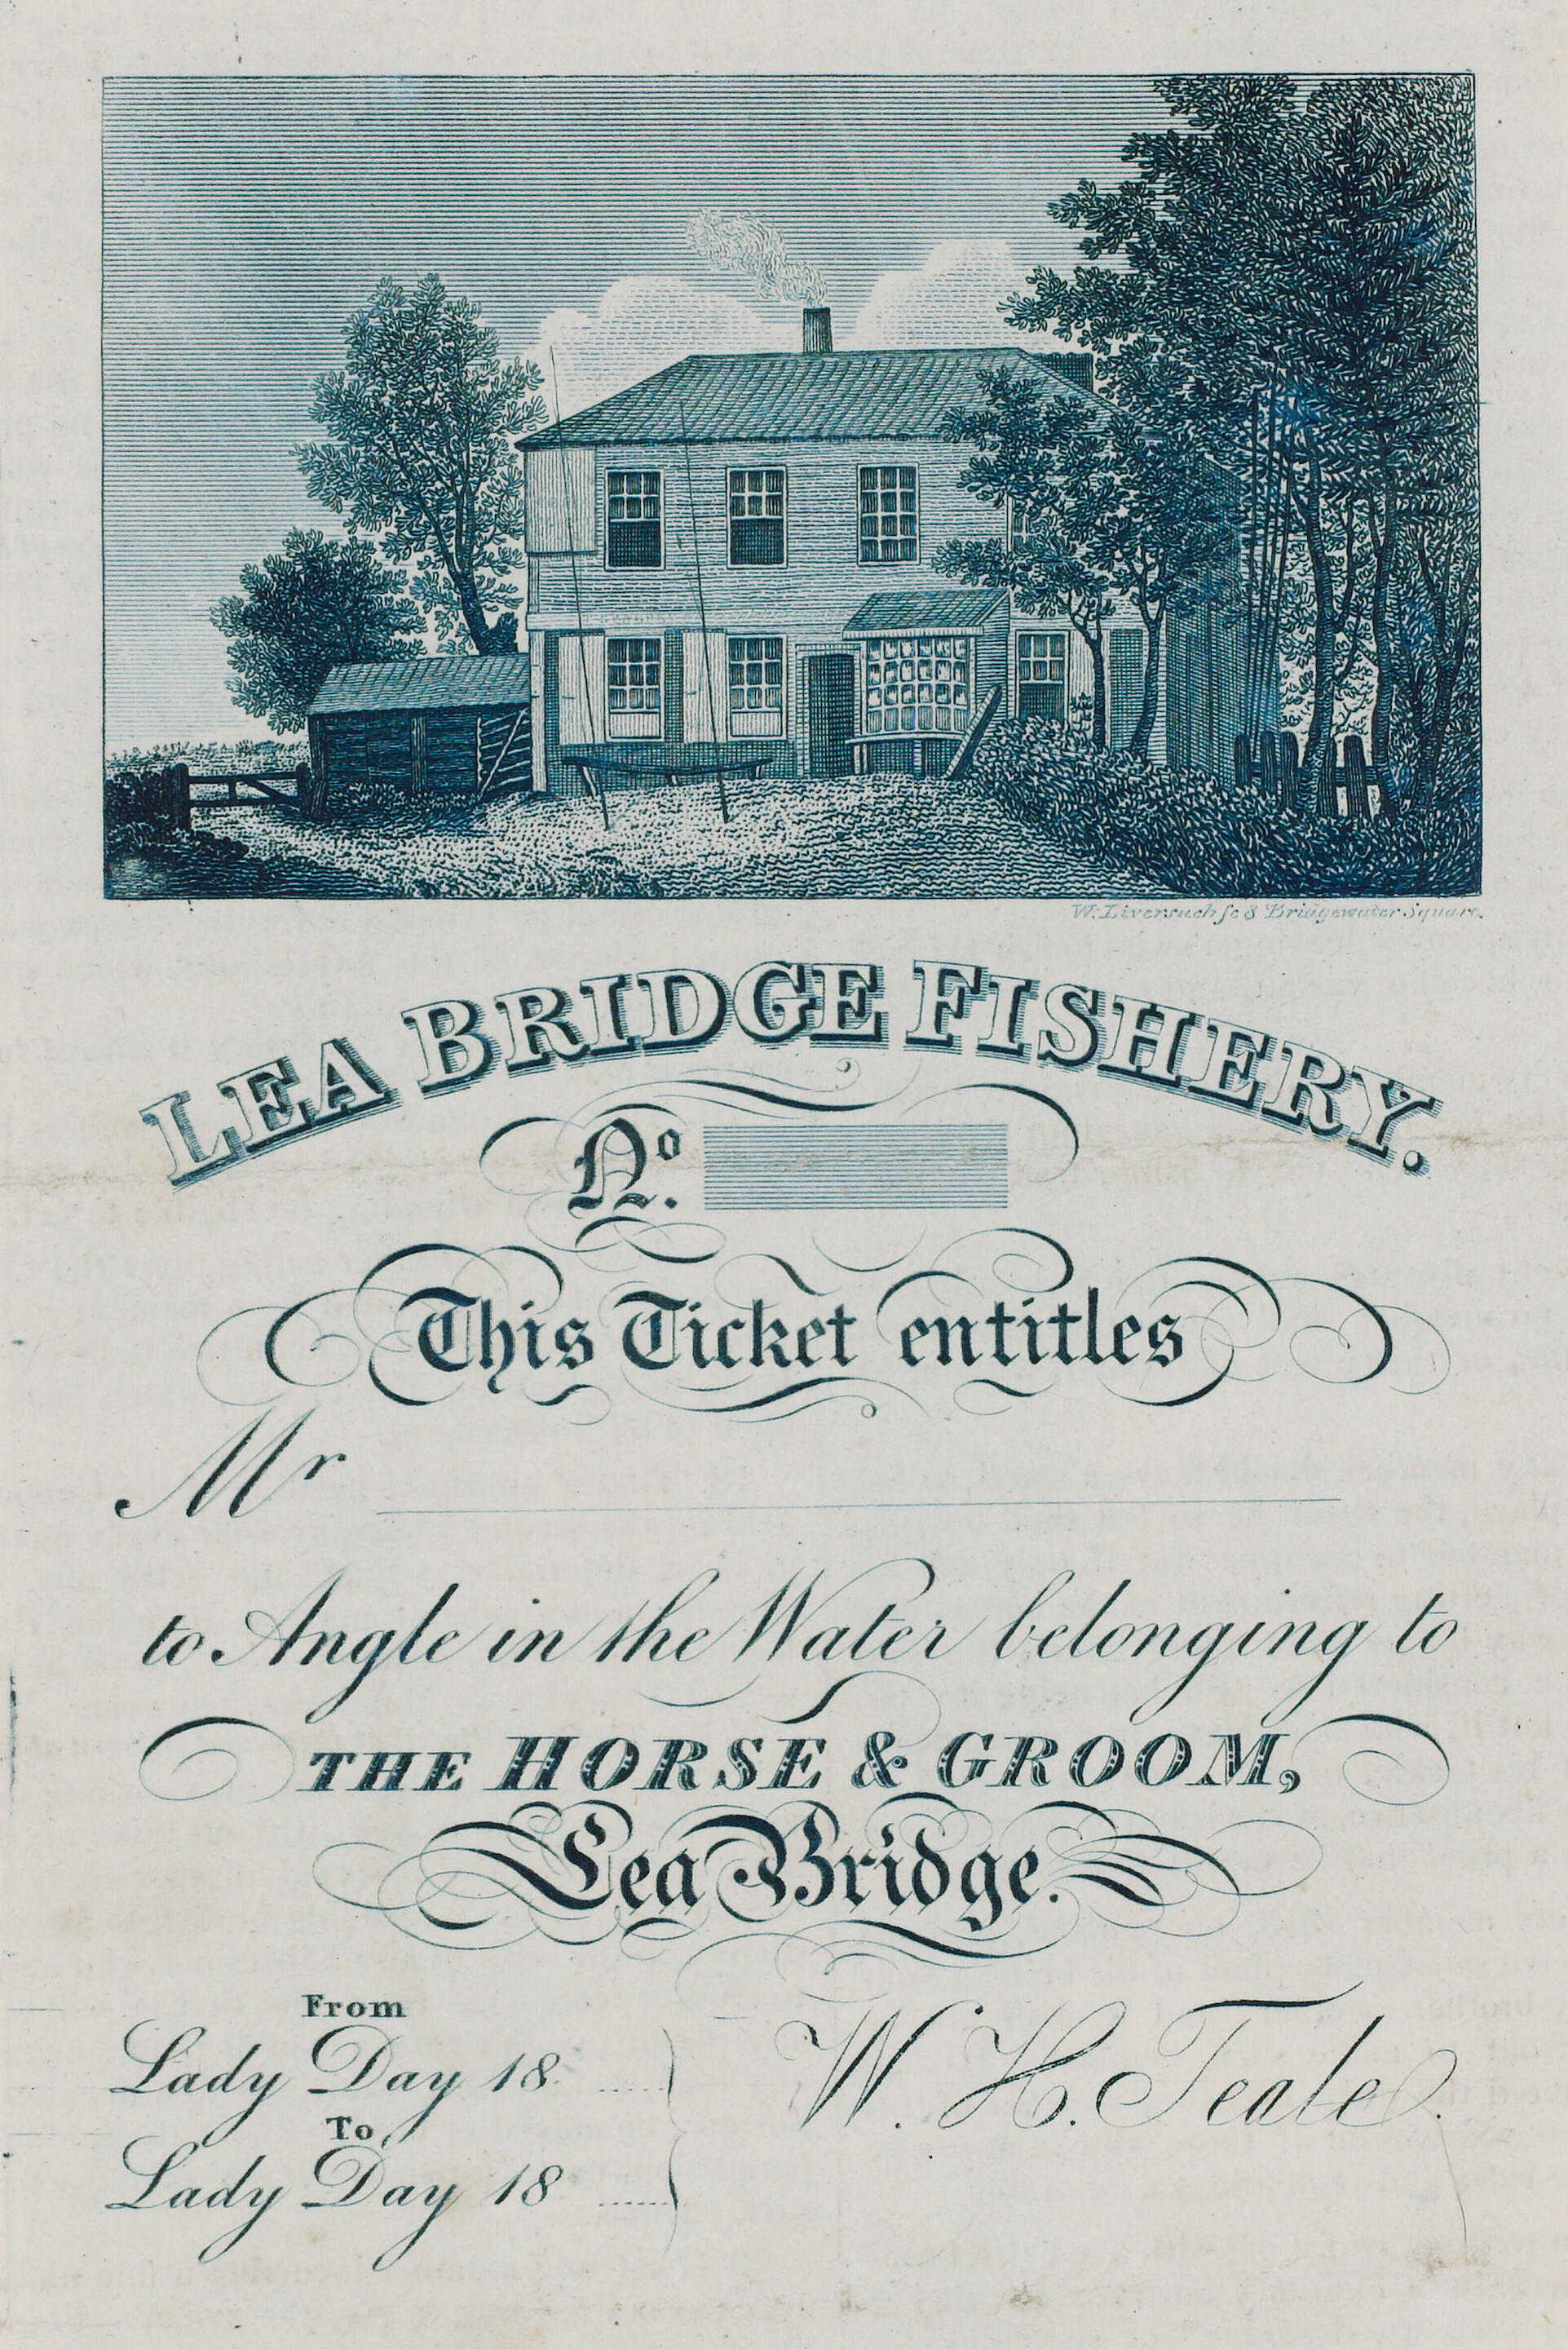 W. Liversuch sc 8 Bridgewater Square.
LEA BRIDGE FISHERY.
No.
This Ticket entitles
Mr
to Angle in the Water belonging to
THE HORSE & GROOM,
Lea Bridge.
From
Lady Day 18
To
Lady Day 18
W. H. Teale.